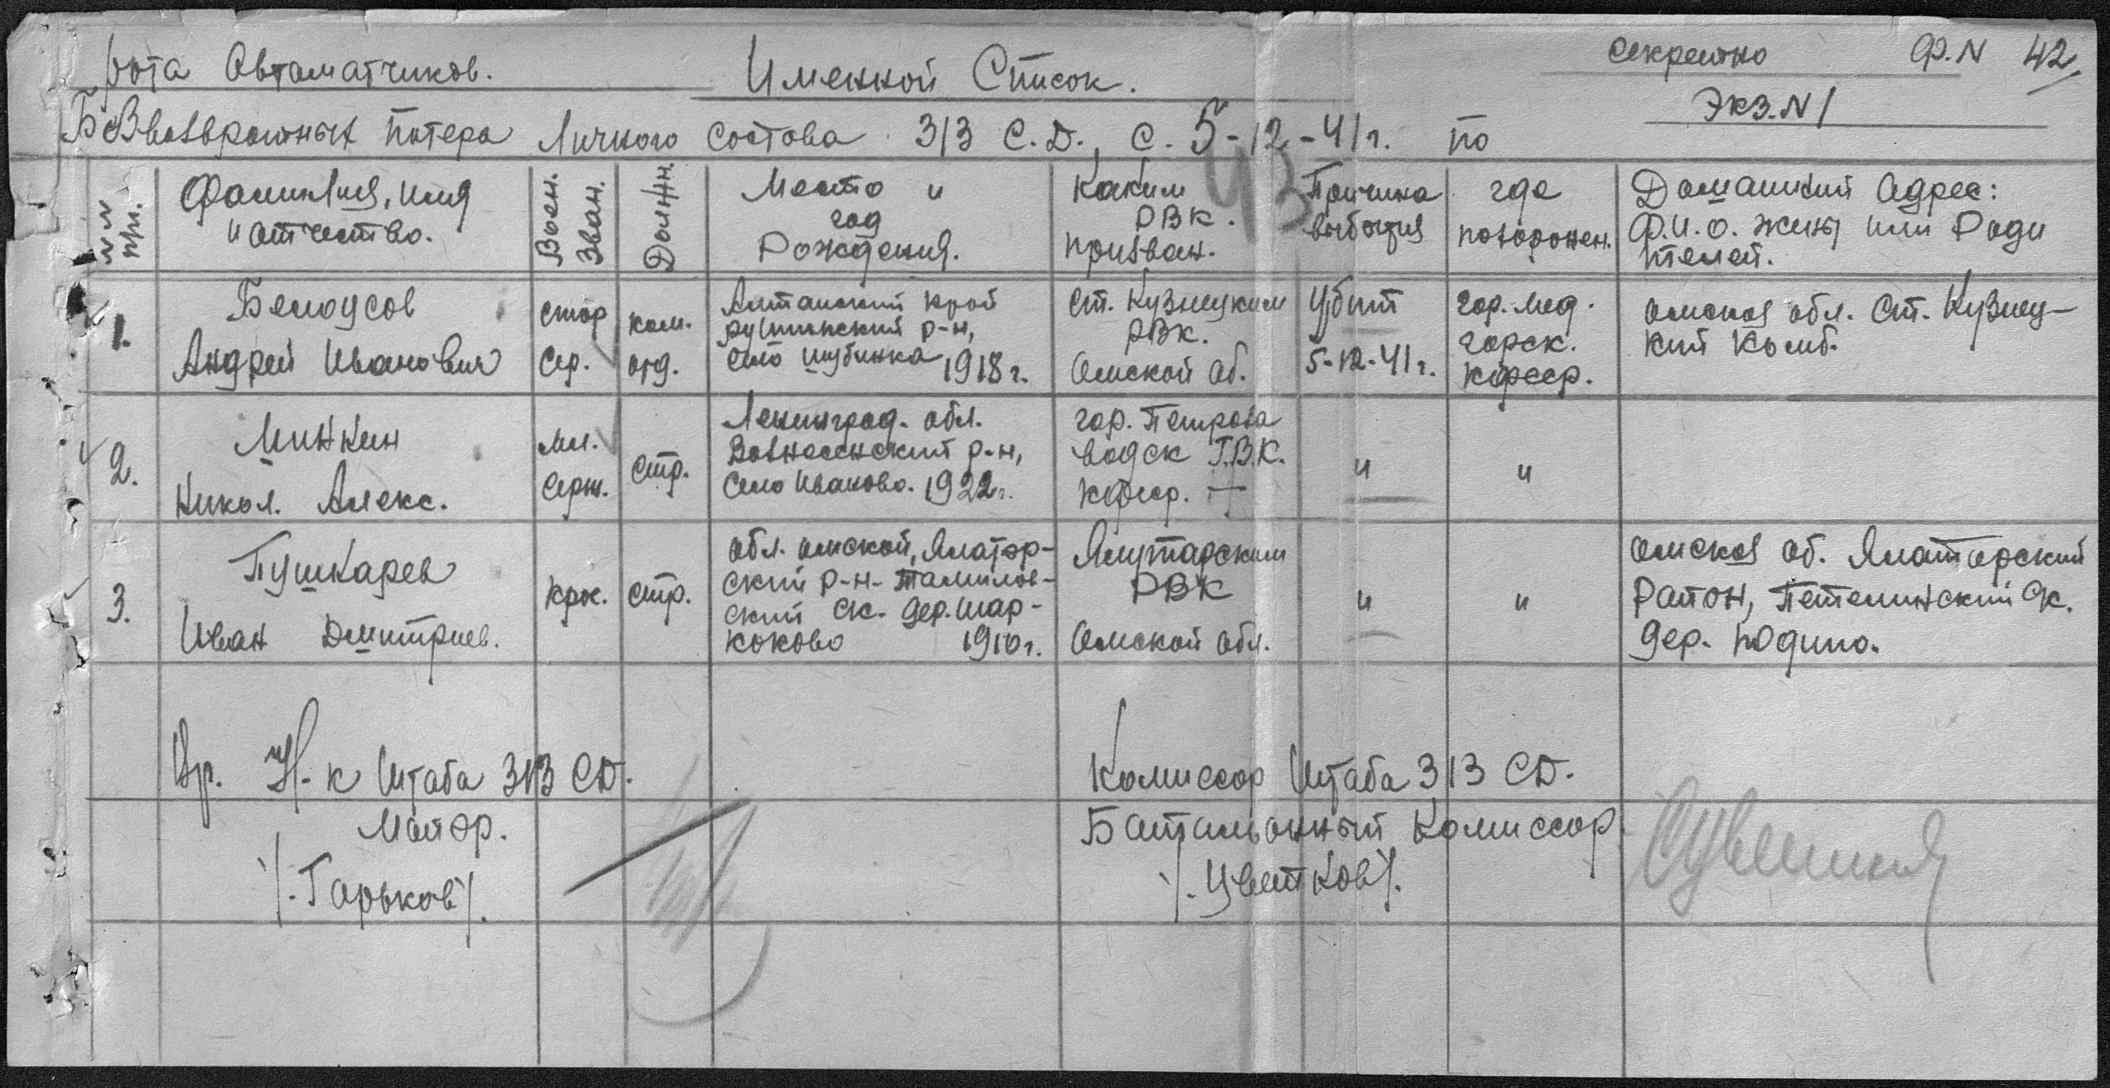 Рота Автоматчиков. Именной Список. секретно Ф.N 42
Экз.N 1
Безвозвратных потерь Личного состава 313 С.Д., с. 5-12-41г. по
43
NN п/п. Фамилия, имя и отчество. Воен. Зван. Должн. Место и год Рождения. Каким РВК. призван. Причина выбытия где похоронен. Домашний адрес: Ф.И.О. жены или Роди телей.
1. Белоусов Андрей Иванович стар сер. ком. отд. Алтайский край р-н, село Шубинка 1918г. ст. Кузнецким РВК. Омской об. Убит 5-12-41г. гор. Мед. горск. кфсср. омская обл. ст. Кузнец- кий комб.
2. Минкин Никол. Алекс. мл. серж. стр. Ленинград. обл. Вознесенский р-н, село Иваново. 1922г. гор. Петроза водск Г.В.К. кфсср. и и
3. Пушкарев Иван Дмитриев. крк. стр. обл. омской, Ялатор- ский р-н- Томилов- ский ск. дер. Шар- коково 1910г. Ялуторским РВК Омской обл. и и омская об. Ялаторский Район, Петелинский ск. дер. Юдино.
Вр. Н-к Штаба 313 СД. Комиссар Штаба 313 СД.
Майор. Батальонный Комиссар
/.Горьков/. /.Цветков/.